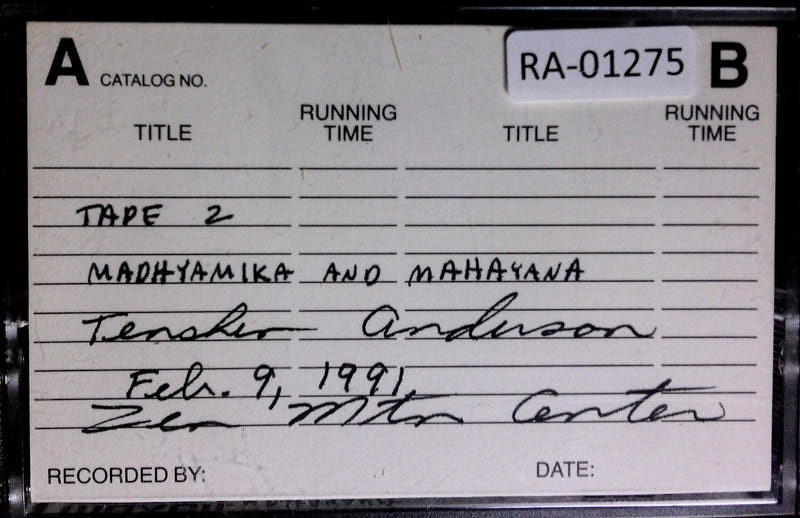 A CATALOG NO. RA-01275 B
TITLE RUNNING TIME TITLE RUNNING TIME
TAPE 2
MADHYAMIKA AND MAHAYANA
Tenshin Anderson
Feb. 9, 1991
Zen Mtn Center
RECORDED BY: DATE: